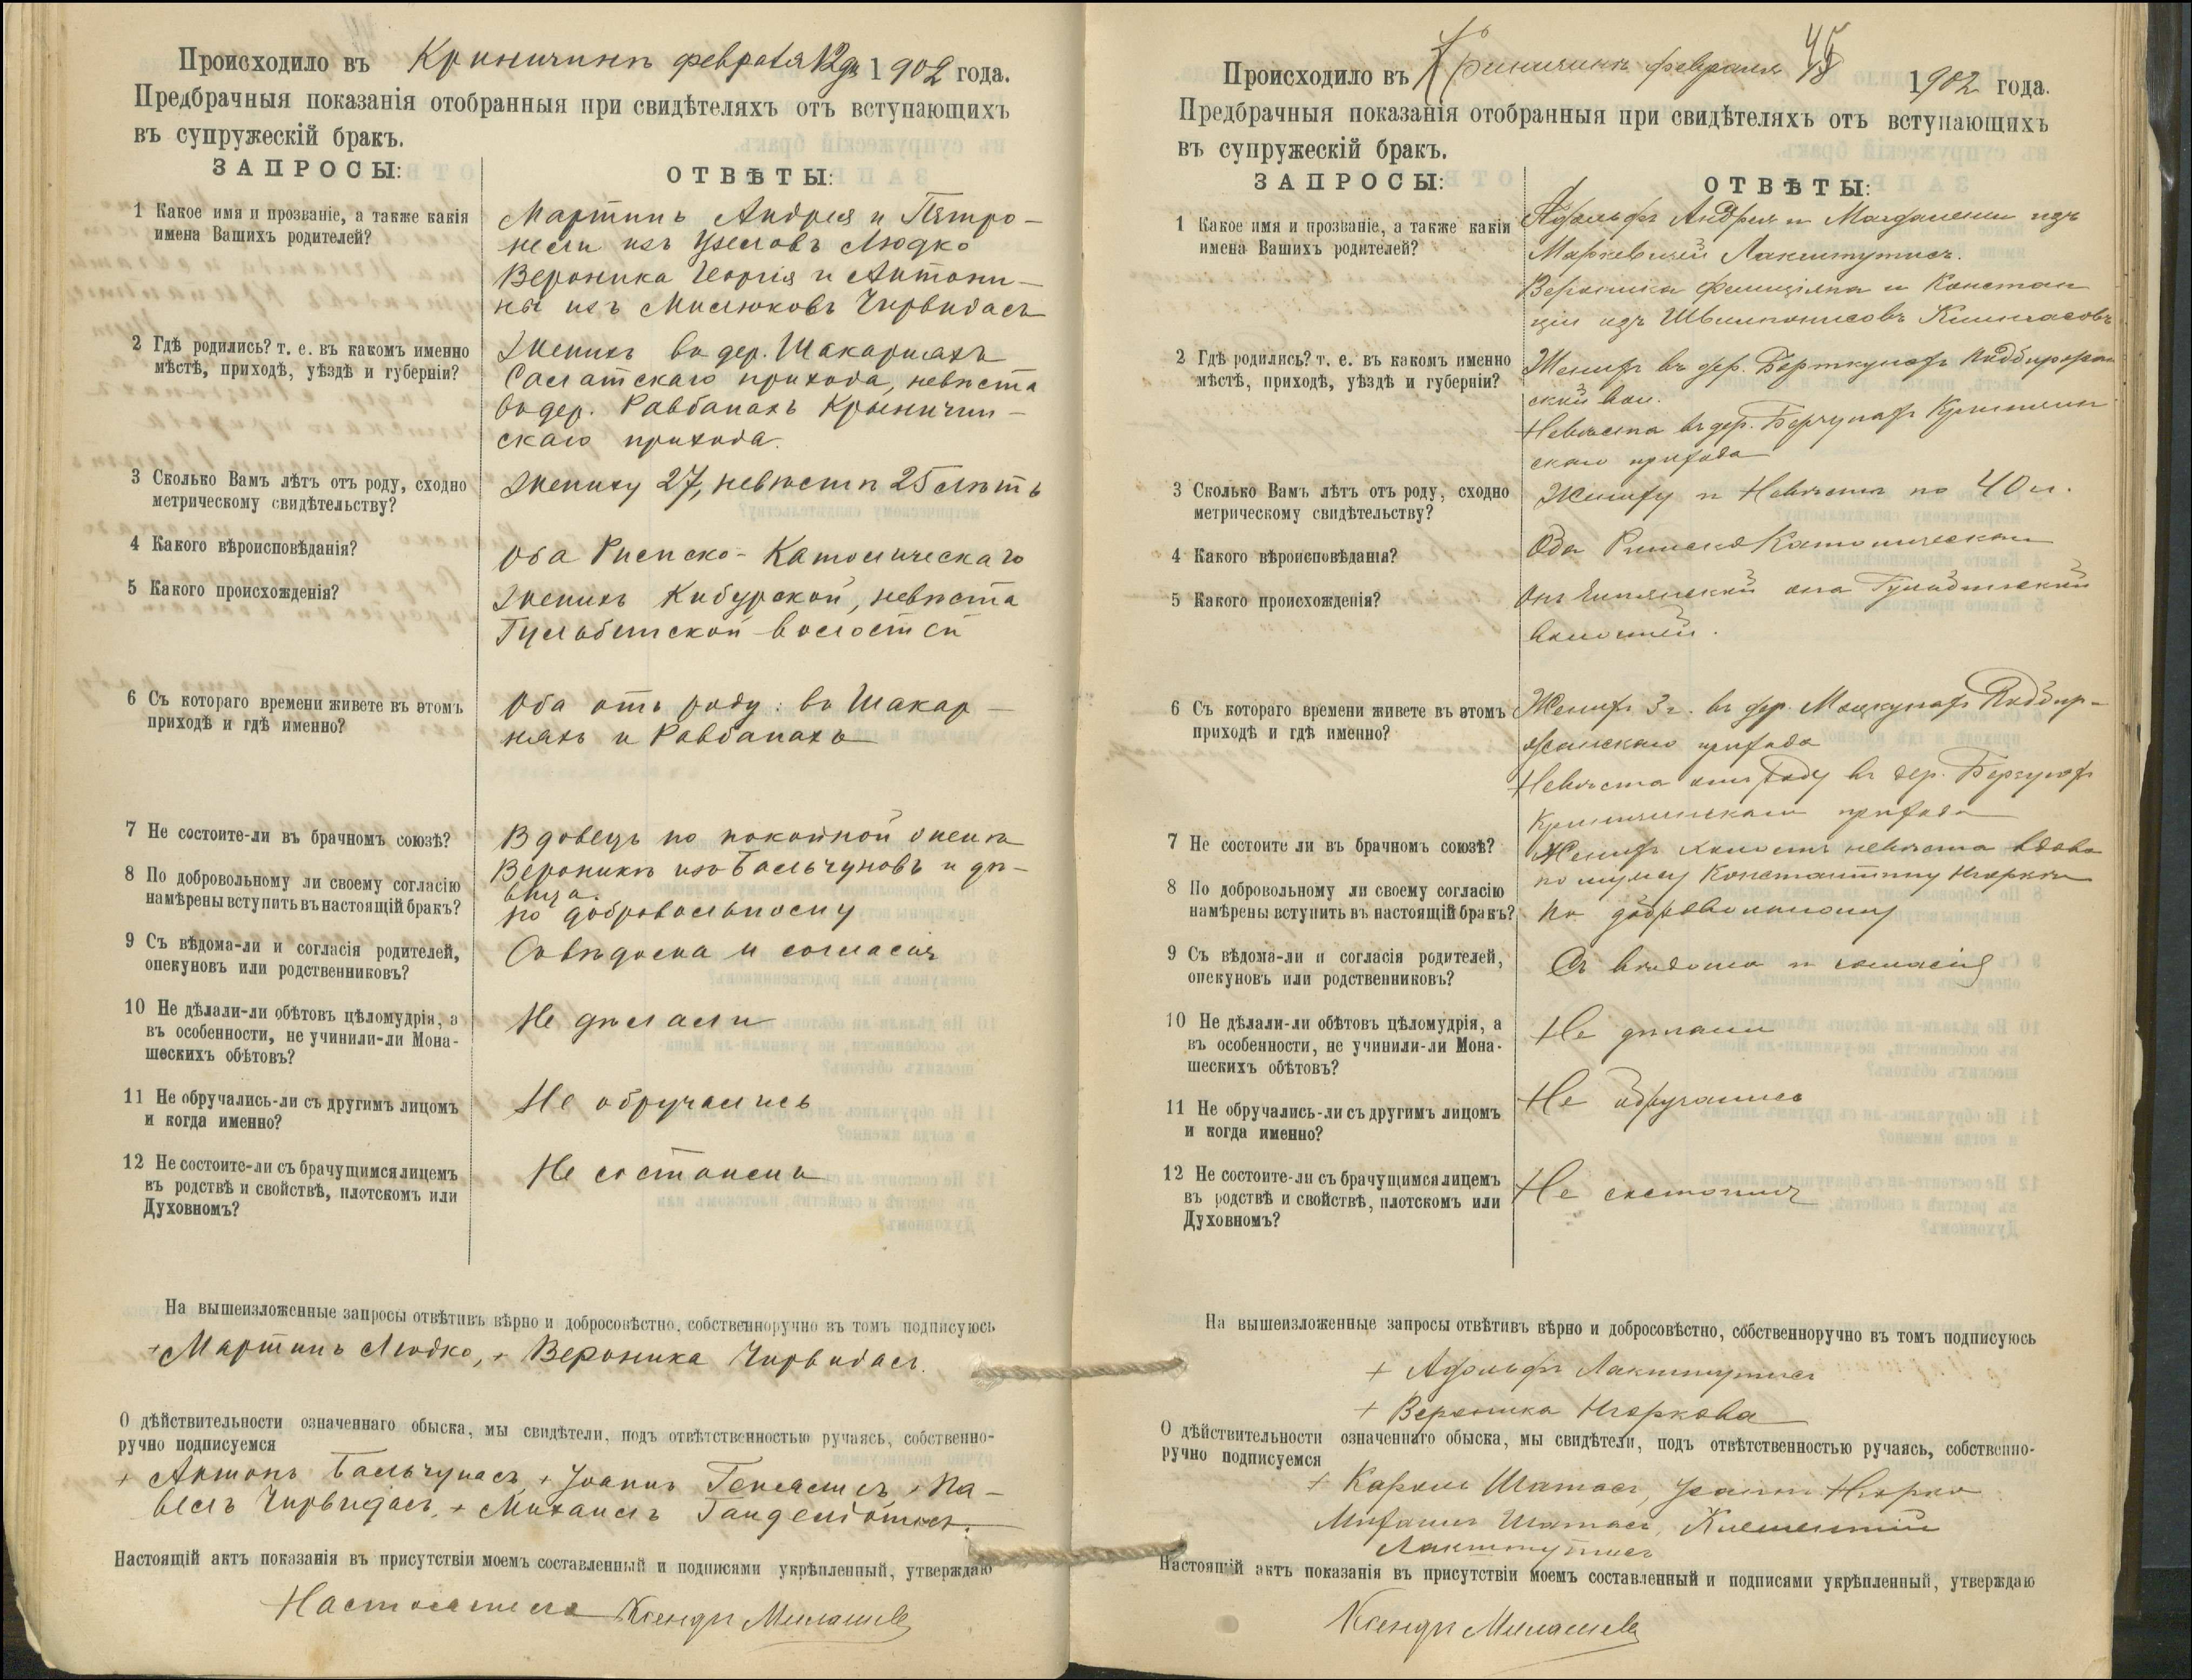 Происходило въ Криничинѣ февраля 12 дня 1902 года.
Предбрачныя показанія отобранныя при свидѣтеляхъ отъ вступающихъ
въ супружескій бракъ.
ЗАПРОСЫ:
ОТВѢТЫ:
1 Какое имя и прозваніе, а также какія
имена Вашихъ родителей?
Мартинъ Андрея и Петро-
нели изъ Людко
Вероника Георгія и Антони-
ны изъ Милюковъ Чирвидасъ
2 Гдѣ родились? т. е. въ какомъ именно
мѣстѣ, приходѣ, уѣздѣ и губерніи?
Женихъ въ дер. Шакарняхъ
Салатскаго прихода, невѣста
въ дер. Равбанахъ Крыничин-
скаго прихода.
3 Сколько Вамъ лѣтъ отъ роду, сходно
метрическому свидѣтельству?
Жениху 27, невѣстѣ 25 лѣтъ
4 Какого вѣроисповѣданія?
Оба Римско-Католическаго
5 Какого происхожденія?
Женихъ Кибурской, невѣста
Гульбинской волостей
6 Съ котораго времени живете въ этомъ
приходѣ и гдѣ именно?
Оба отъ роду: въ Шакар-
няхъ и Равбанахъ
7 Не состоите-ли въ брачномъ союзѣ?
Вдовецъ по покойной женѣ
Вероникѣ изъ Бальчуновъ и дѣ-
вица.
8 По добровольному ли своему согласію
намѣрены вступить въ настоящій бракъ?
по добровольному
9 Съ вѣдома-ли и согласія родителей,
опекуновъ или родственниковъ?
Съ вѣдома и согласія
10 Не дѣлали-ли обѣтовъ цѣломудрія, а
въ особенности, не учинили-ли Мона-
шескихъ обѣтовъ?
Не дѣлали
11 Не обручались-ли съ другимъ лицомъ
и когда именно?
Не обручались
12 Не состоите-ли съ брачущимся лицемъ
въ родствѣ и свойствѣ, плотскомъ или
Духовномъ?
Не состоимъ
На вышеизложенные запросы отвѣтивъ вѣрно и добросовѣстно, собственноручно въ томъ подписуюсь
+ Мартинъ Людко, + Вероника Чирвидасъ.
О дѣйствительности означеннаго обыска, мы свидѣтели, подъ отвѣтственностью ручаясь, собственно-
ручно подписуемся
+ Антонъ Бальчунасъ, + Іоаннъ + Па-
велъ Чирвидасъ, + Михаилъ
Настоящій актъ показанія въ присутствіи моемъ составленный и подписями укрѣпленный, утверждаю
Настоятель Ксендзъ
45
Происходило въ Криничинѣ февраля 1902 года.
Предбрачныя показанія отобранныя при свидѣтеляхъ отъ вступающихъ
въ супружескій бракъ.
ЗАПРОСЫ:
ОТВѢТЫ:
1 Какое имя и прозваніе, а также какія
имена Вашихъ родителей?
Адольфъ Андрея и Магдалены изъ
Лакштутисъ.
Вероника Фелиціяна и Констан
ціи изъ
2 Гдѣ родились? т. е. въ какомъ именно
мѣстѣ, приходѣ, уѣздѣ и губерніи?
Женихъ въ дер.
ской вол.
Невѣста въ дер. Криничин
скаго прихода
3 Сколько Вамъ лѣтъ отъ роду, сходно
метрическому свидѣтельству?
Жениху и Невѣстѣ по 40 л.
4 Какого вѣроисповѣданія?
Оба Римско Католическаго
5 Какого происхожденія?
Онъ она Гульбинской
волостей.
6 Съ котораго времени живете въ этомъ
приходѣ и гдѣ именно?
Женихъ 3 г. въ дер.
прихода
Невѣста отъ роду въ дер.
Криничинскаго прихода
7 Не состоите ли въ брачномъ союзѣ?
Женихъ холостъ невѣста вдова
по мужу Константину
8 По добровольному ли своему согласію
намѣрены вступить въ настоящій бракъ?
по добровольному
9 Съ вѣдома-ли и согласія родителей,
опекуновъ или родственниковъ?
Съ вѣдома и согласія
10 Не дѣлали-ли обѣтовъ цѣломудрія, а
въ особенности, не учинили-ли Мона-
шескихъ обѣтовъ?
Не дѣлали
11 Не обручались-ли съ другимъ лицомъ
и когда именно?
Не обручались
12 Не состоите-ли съ брачущимся лицемъ
въ родствѣ и свойствѣ, плотскомъ или
Духовномъ?
Не состоимъ
На вышеизложенные запросы отвѣтивъ вѣрно и добросовѣстно, собственноручно въ томъ подписуюсь
+ Адольфъ Лакштутисъ
+ Вероника
О дѣйствительности означеннаго обыска, мы свидѣтели, подъ отвѣтственностью ручаясь, собственно-
ручно подписуемся
+ Шатасъ,
Михаилъ Шатасъ, Клементій
Лакштутисъ
Настоящій актъ показанія въ присутствіи моемъ составленный и подписями укрѣпленный, утверждаю
Ксендзъ